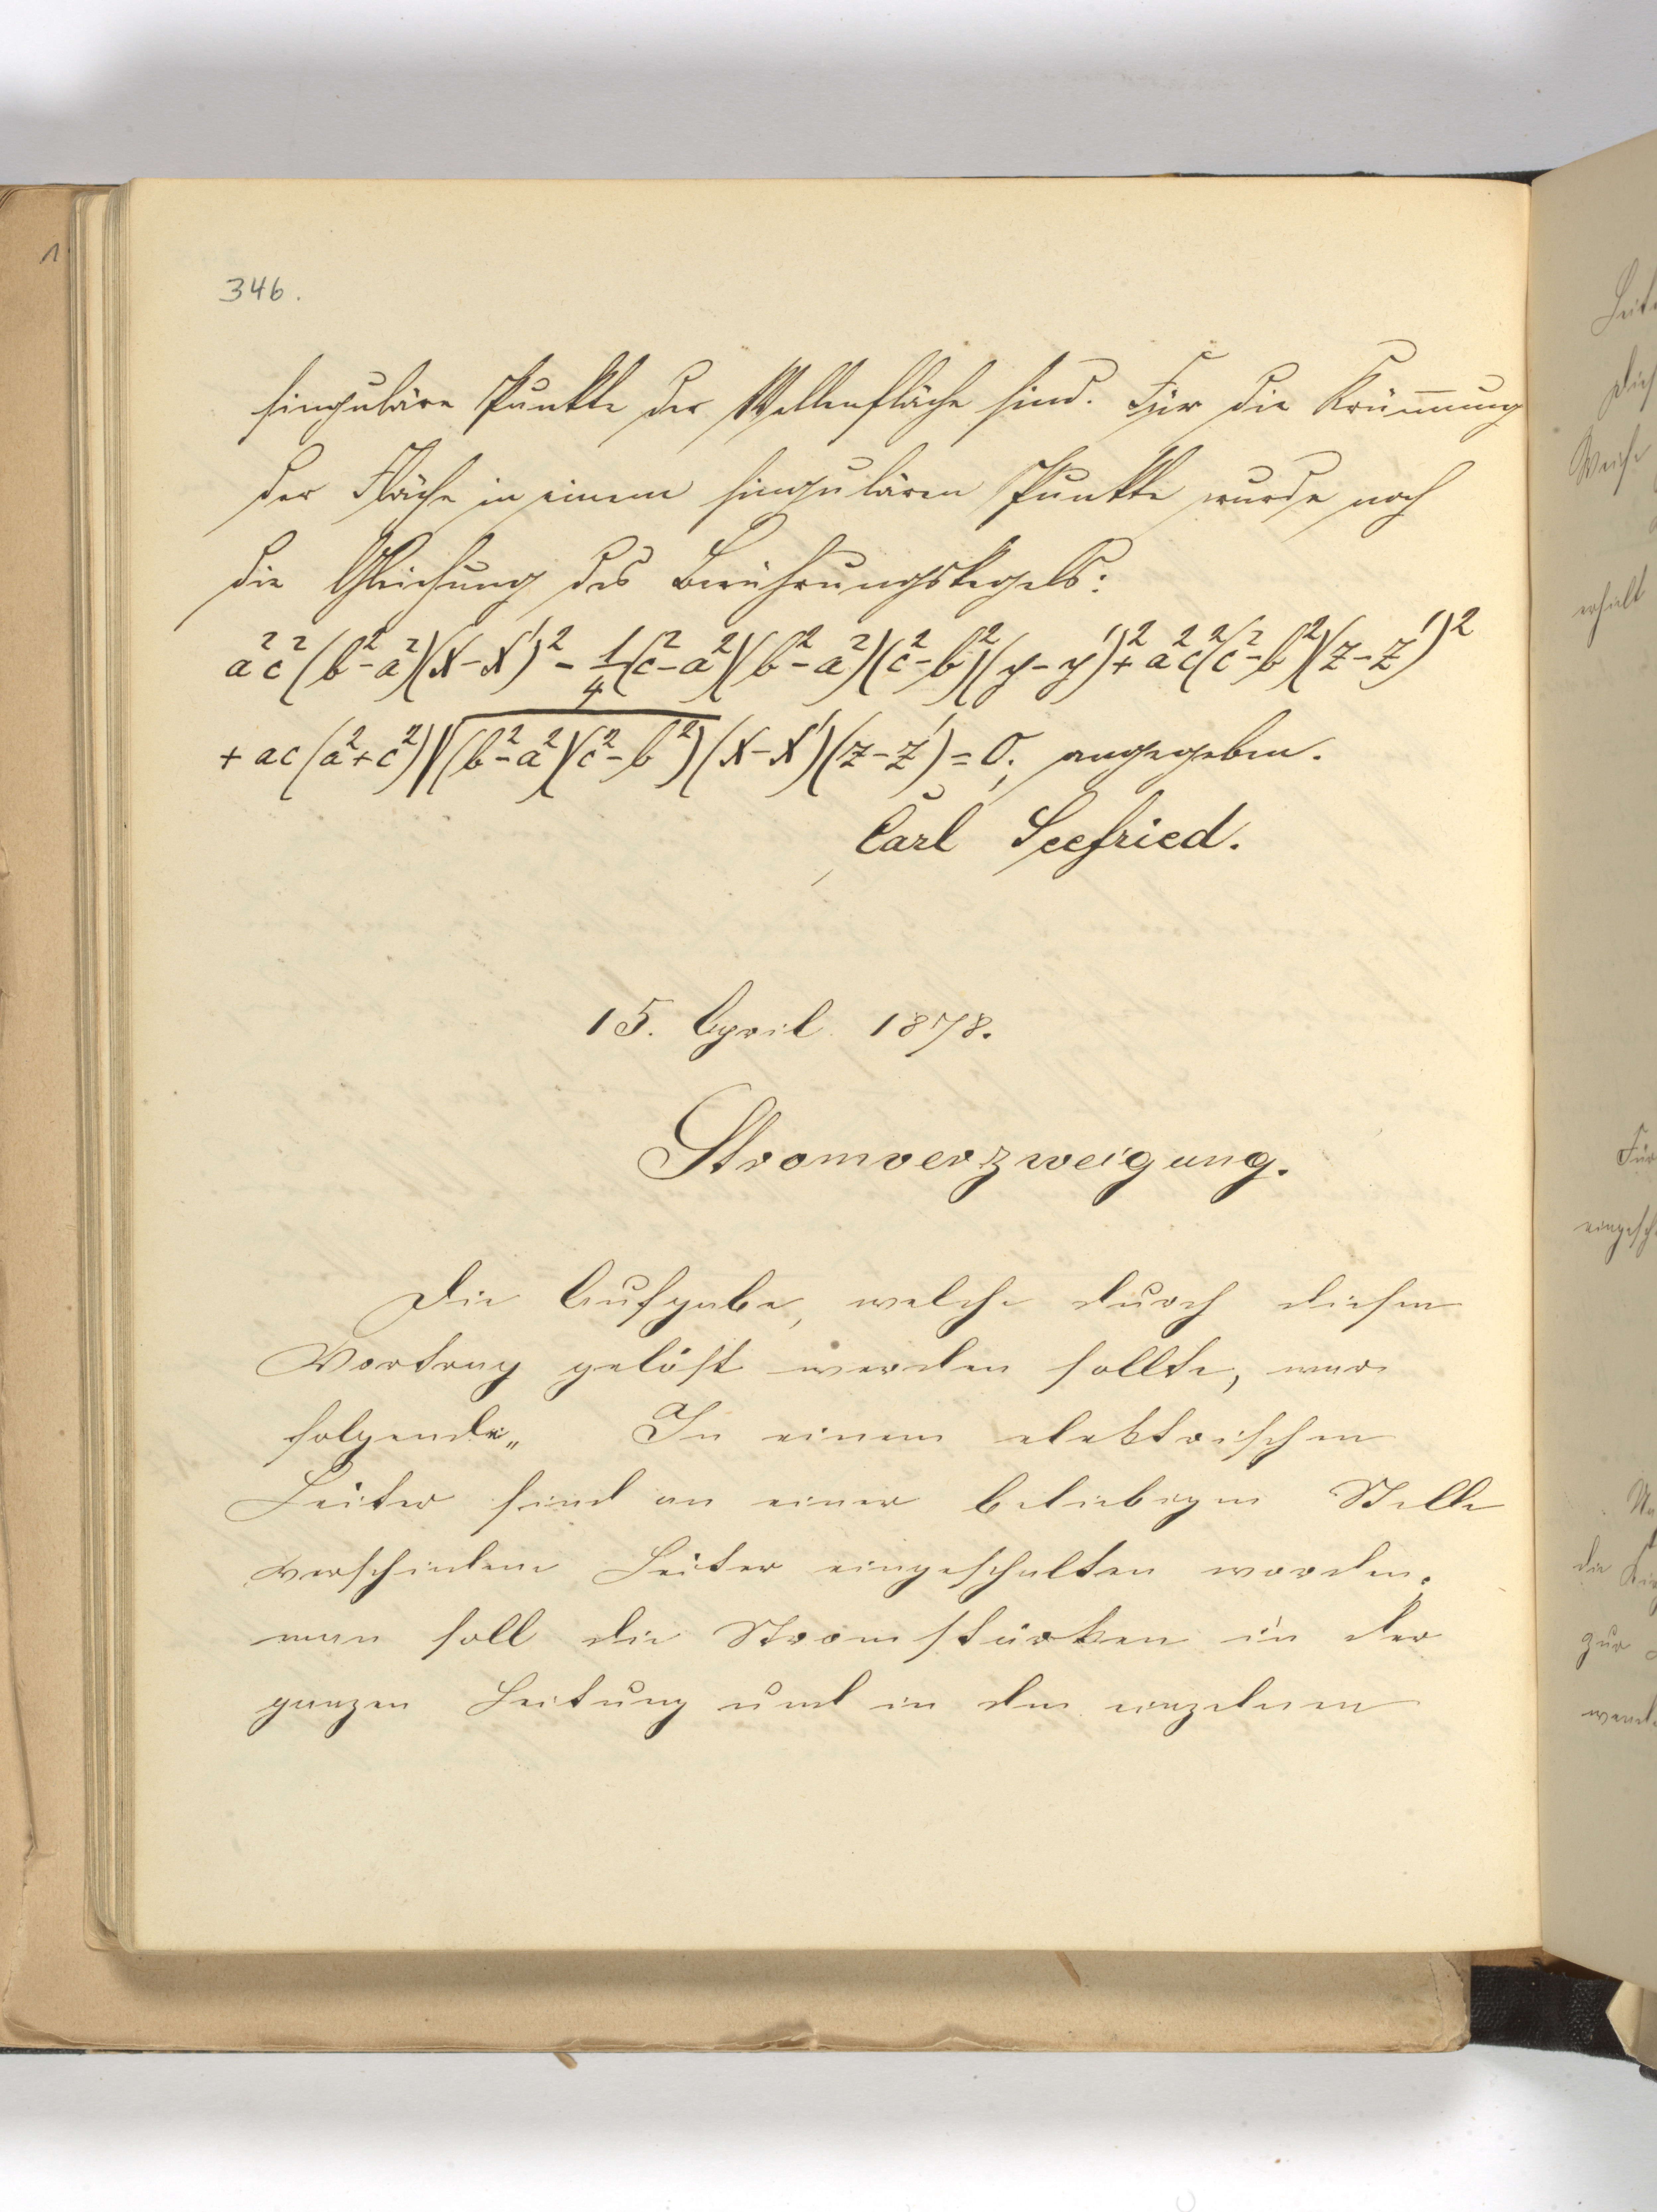 346.
singuläre Punkte der Wellenfläche sind. Für die Krümmung
der Fläche in einem singulären Punkte wurde noch
die Gleichung des Berührungskegels:
a²c²(b²-a²)(x-x')² - 1/4(c²-a²)(b²-a²)(c²-b²)(y-y')² + a²c²(c²-b²)(z-z')²
+ ac(a²+c²)√(b²-a²)(c²-b²)(x-x')(z-z') = 0; angegeben.
Carl Seefried.
15. April 1878.
Stromverzweigung.
Die Aufgabe, welche durch diesen
Vortrag gelöst werden sollte, war
folgende„ In einem elektrischen
Leiter sind an einer beliebigen Stelle
verschiedene Leiter eingeschalten worden.
man soll die Stromstärken in der
ganzen Leitung und in den einzelnen
Weiche
erhielt
Für
die
zur